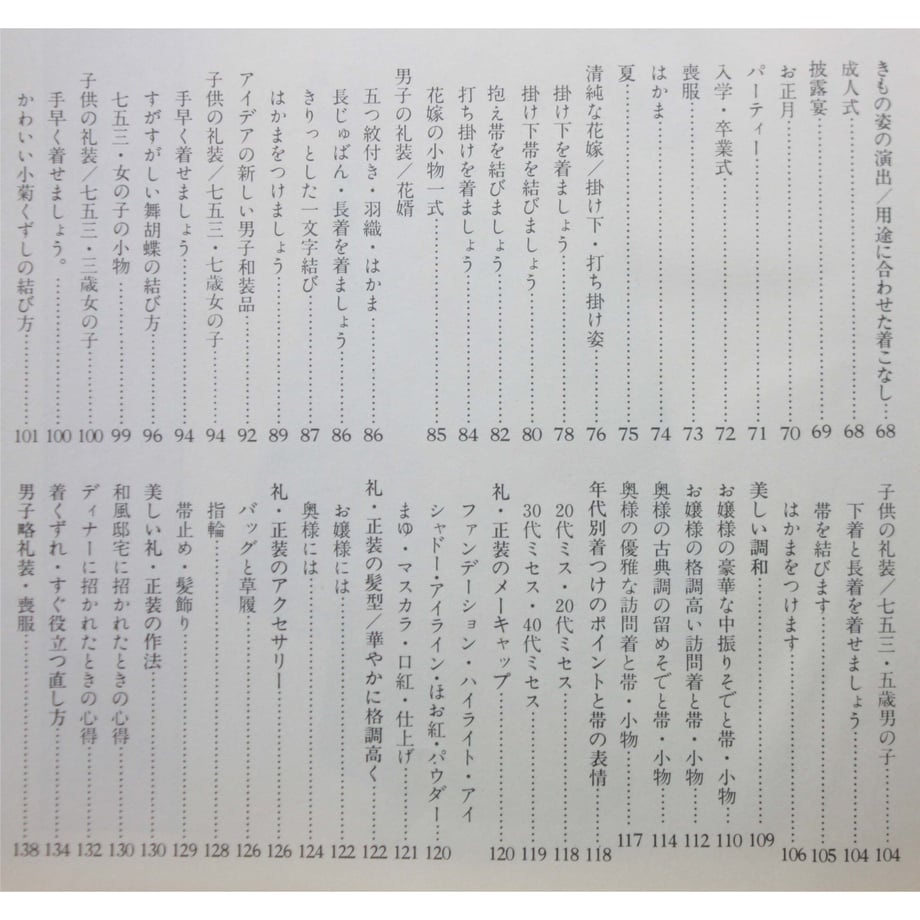 きもの姿の演出/用途に合わせた着こなし……68
成人式……68
披露宴……69
お正月……70
パーティー……71
入学・卒業式……72
喪服……73
はかま……74
夏……75
清純な花嫁/掛け下・打ち掛け姿……76
掛け下を着ましょう……78
掛け下帯を結びましょう……80
抱え帯を結びましょう……82
打ち掛けを着ましょう……84
花嫁の小物一式……85
男子の礼装/花婿
五つ紋付き・羽織・はかま……86
長じゅばん・長着を着ましょう……86
きりっとした一文字結び……87
はかまをつけましょう……89
アイデアの新しい男子和装品……92
子供の礼装/七五三・七歳女の子……94
手早く着せましょう……94
すがすがしい舞胡蝶の結び方……96
七五三・女の子の小物……99
子供の礼装/七五三・三歳女の子……100
手早く着せましょう。……100
かわいい小菊くずしの結び方……101
子供の礼装/七五三・五歳男の子……104
下着と長着を着せましょう……104
帯を結びます……105
はかまをつけます……106
美しい調和……109
お嬢様の豪華な中振りそでと帯・小物……110
お嬢様の格調高い訪問着と帯・小物……112
奥様の古典調の留めそでと帯・小物……114
奥様の優雅な訪問着と帯・小物……117
年代別着つけのポイントと帯の表情……118
20代ミス・20代ミセス……118
30代ミセス・40代ミセス……119
礼・正装のメーキャップ……120
ファンデーション・ハイライト・アイ
シャドー・アイライン・ほお紅・パウダー……120
まゆ・マスカラ・口紅・仕上げ……121
礼・正装の髪型/華やかに格調高く……122
お嬢様には……122
奥様には……124
礼・正装のアクセサリー……126
バッグと草履……126
指輪……128
帯止め・髪飾り……129
美しい礼・正装の作法……130
和風邸宅に招かれたときの心得……130
ディナーに招かれたときの心得……132
着くずれ・すぐ役立つ直し方……134
男子略礼装・喪服……138